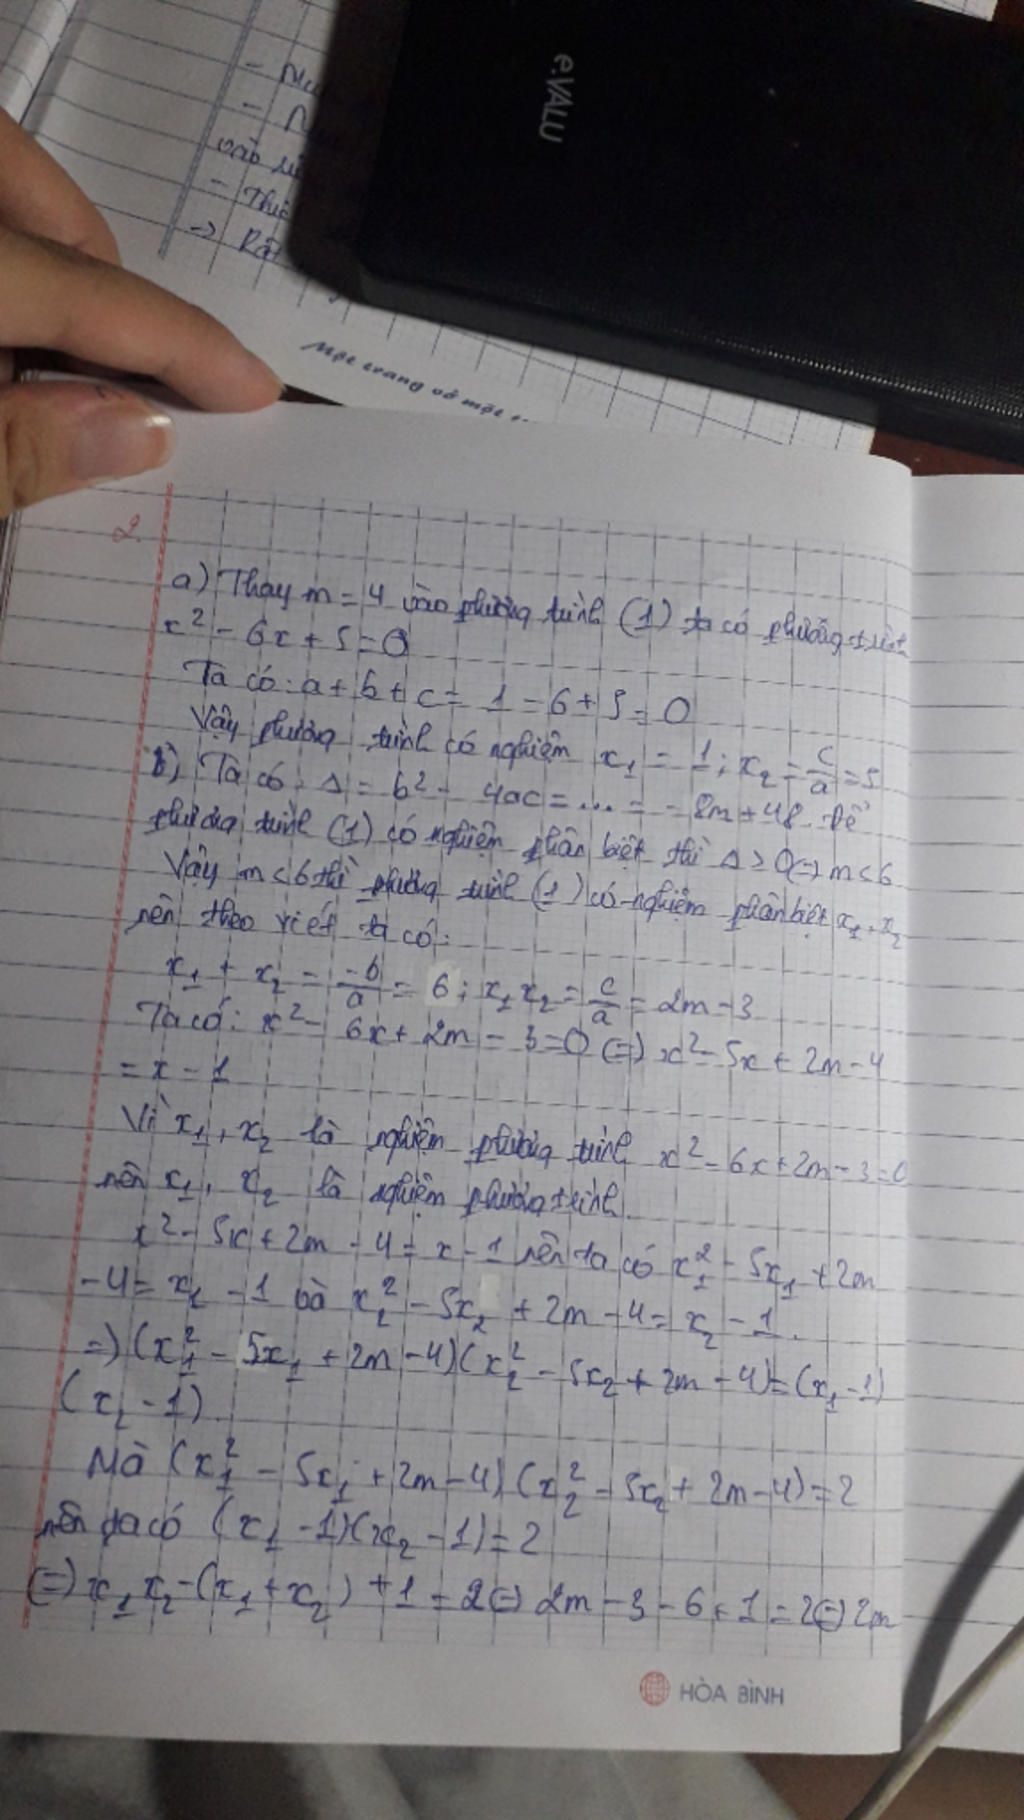 e.VALU
vào
→ Rất
Một trang vở một
2.
a) Thay m = 4 vào phương trình (1) ta có phương trình
x² - 6x + 5 = 0
Ta có: a + b + c = 1 - 6 + 5 = 0
Vậy phương trình có nghiệm x₁ = 1; x₂ = c/a = 5
b) Ta có: Δ = b² - 4ac = ... = -8m + 48. Để
phương trình (1) có nghiệm phân biệt thì Δ > 0 (=) m < 6
Vậy m < 6 thì phương trình (1) có nghiệm phân biệt x₁, x₂
nên theo viét ta có:
x₁ + x₂ = -b/a = 6; x₁x₂ = c/a = 2m - 3
Ta có: x² - 6x + 2m - 3 = 0 (=) x² - 5x + 2m - 4
= x - 1
Vì x₁, x₂ là nghiệm phương trình x² - 6x + 2m - 3 = 0
nên x₁, x₂ là nghiệm phương trình
x² - 5x + 2m - 4 = x - 1 nên ta có x₁² - 5x₁ + 2m
- 4 = x₁ - 1 và x₂² - 5x₂ + 2m - 4 = x₂ - 1.
=) (x₁² - 5x₁ + 2m - 4)(x₂² - 5x₂ + 2m - 4) = (x₁ - 1)
(x₂ - 1)
Mà (x₁² - 5x₁ + 2m - 4)(x₂² - 5x₂ + 2m - 4) = 2
nên ta có (x₁ - 1)(x₂ - 1) = 2
(=) x₁x₂ - (x₁ + x₂) + 1 = 2 (=) 2m - 3 - 6 + 1 = 2 (=) 2m
HÒA BÌNH